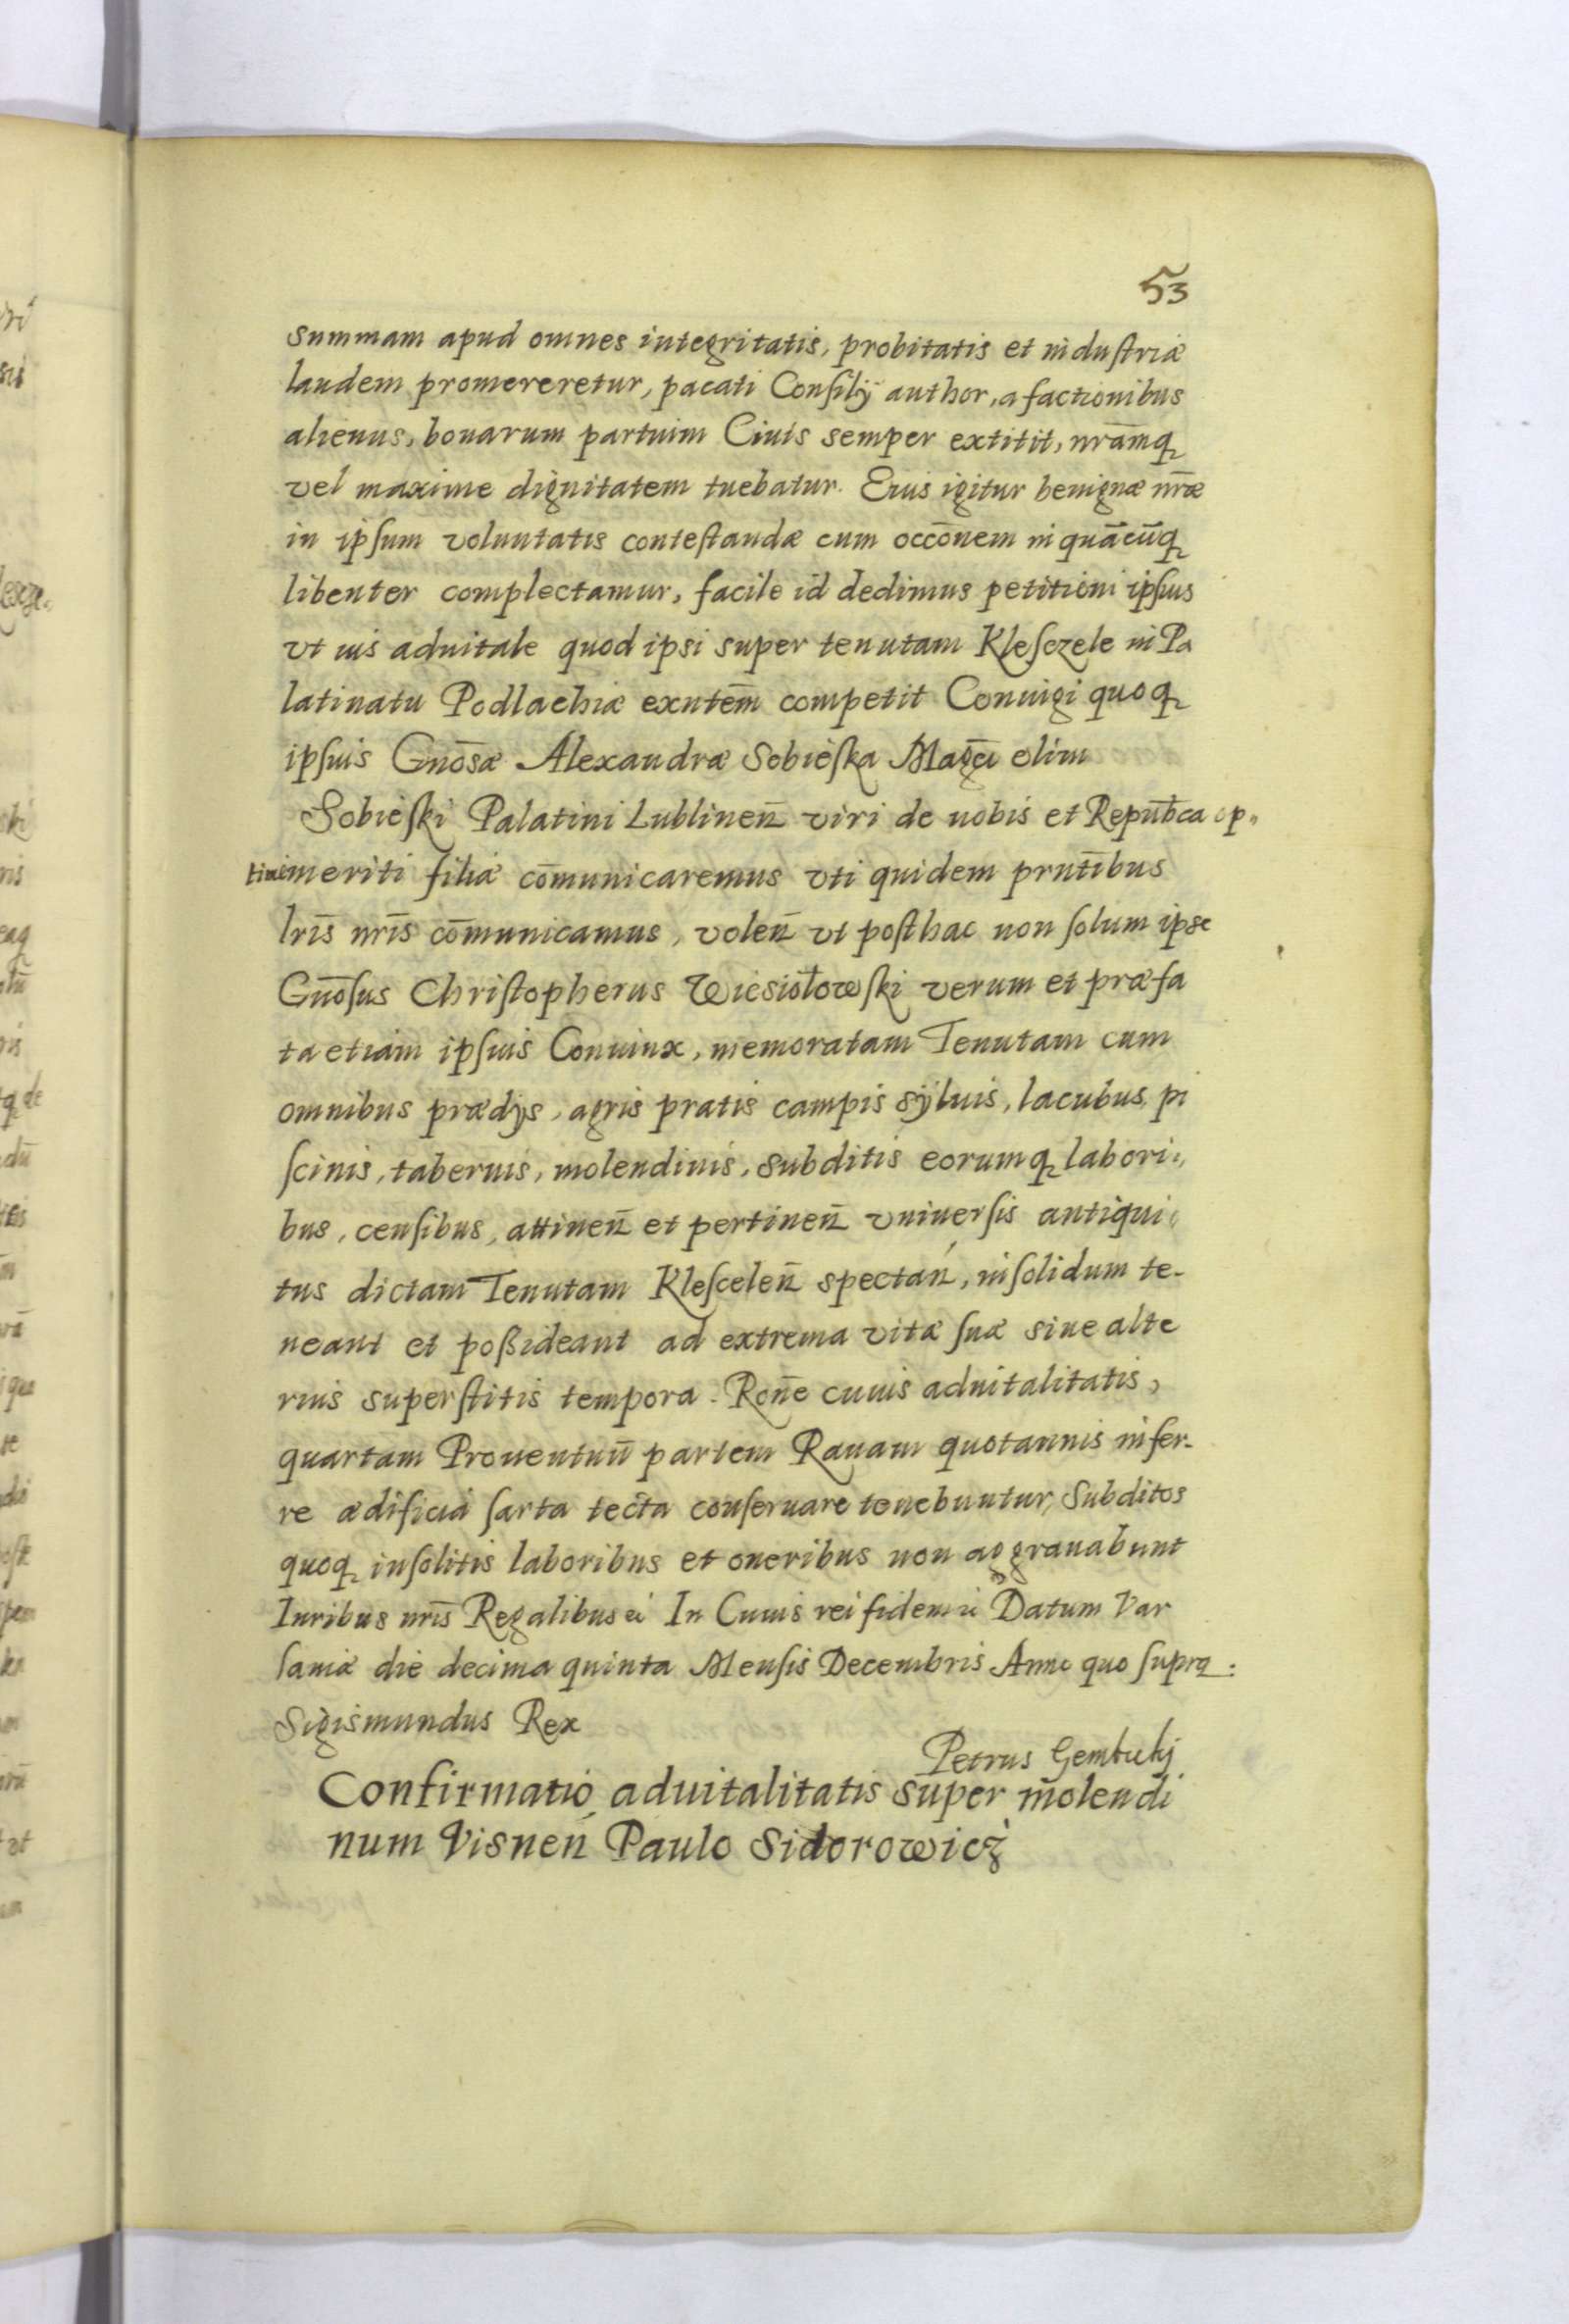 53
summam apud omnes integritatis, probitatis et industriæ
laudem promereretur, pacati Consilÿ author, a factionibus
alienus, bonarum partium Ciuis semper extitit, nrãmq
vel maxime dignitatem tuebatur. Eius igitur benignæ nr̃æ
in ipsum voluntatis contestandæ cum occõnem in quãcũq
libenter complectamur, facile id dedimus petitioni ipsius
vt ius aduitale quod ipsi super tenutam Klesczele in Pa
latinatu Podlachiæ exntẽm competit Coniugi quoq
ipsius Gnõsæ Alexandræ Sobieska Magci olim
Sobieski Palatini Lublineñ viri de nobis et Repub̃ca op„
time meriti filiæ cõmunicaremus vti quidem prntĩbus
lrĩs nrĩs cõmunicamus, voleñ vt posthac non solum ipse
Gnõsus Christopherus Wiesiołowski verum et præfa
ta etiam ipsius Coniunx, memoratam Tenutam cum
omnibus prædÿs, agris pratis campis sÿluis, lacubus, pi
scinis, tabernis, molendinis, subditis eorumq labori„
bus, censibus, attineñ et pertineñ vniuersis antiqui
tus dictam Tenutam Klesceleñ spectań, insolidum te-
neant et possideant ad extrema vitæ suæ siue alte
rius superstitis tempora. Roñe cuius aduitalitatis,
quartam Prouentuũ partem Rauam quotannis infer-
re ædificia sarta tecta conseruare tenebuntur, Subditos
quoq insolitis laboribus et oneribus non aggrauabunt
Iuribus nrĩs Regalibus In Cuius rei fidem Datum Var
sauiæ die decima quinta Mensis Decembris Anno quo supra:
Sigismundus Rex
Petrus Gembickj
Confirmatio aduitalitatis super molendi
num Visneń Paulo Sidorowicz